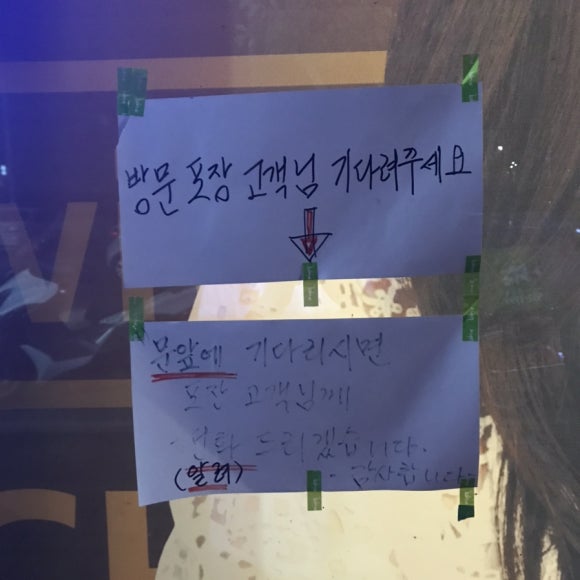 방문 포장 고객님 기다려주세요
문앞에 기다리시면
포장 고객님께
드리겠습니다.
(알려)
- 감사합니다-